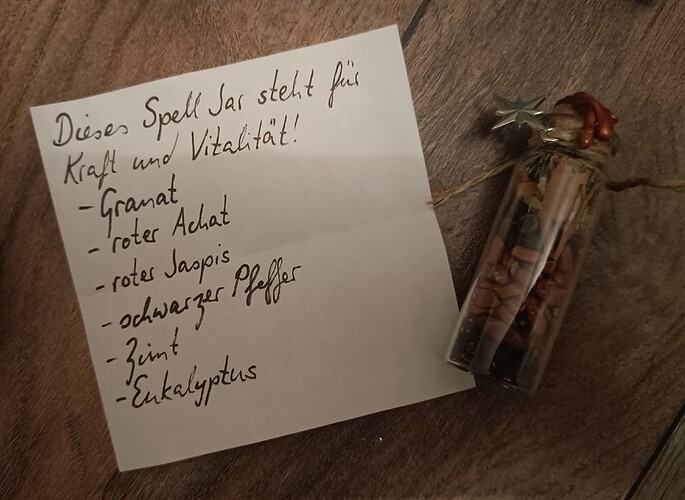 Dieses Spell Jar steht für
Kraft und Vitalität!
- Granat
- roter Achat
- roter Jaspis
- schwarzer Pfeffer
- Zimt
- Eukalyptus